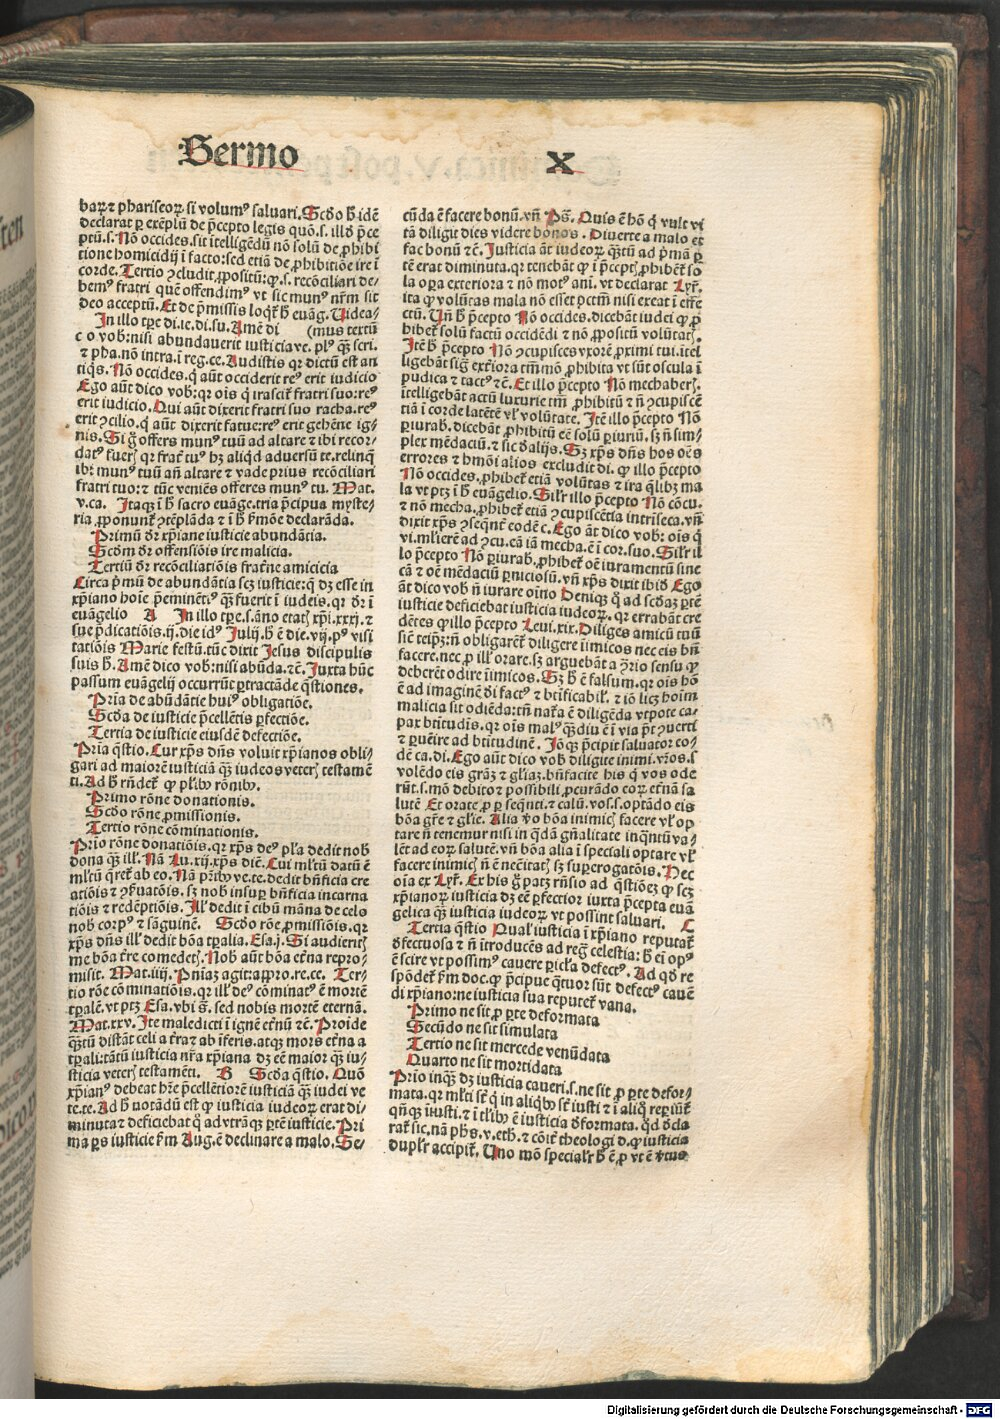 Sermo X
barꝝ ⁊ phariseoꝝ si volumꝰ saluari. Scďo h̄ idē
declarat ꝑ exēplū de p̄cepto legis quō .s. illd̓ p̄ce
ptū .s. Nō occides. sit ītelligēdū nō solū de ꝓhibi
tione homicidij ī facto: sed etiā de ꝓhibitiōe ire ī
corde. Tertio ꝯcludit ꝓpositū: ꝙ .s. recōciliari de-
bemꝰ fratri quē offendimꝰ vt sic munꝰ nr̄m sit
deo acceptū. Et de p̄missis loqt̄ h̄ euāg. Uidea-
In illo tꝑe di. ie. di. su. Amē di (mus textū
c o vob: nisi abundauerit iusticia ve. plꝰ qȝ scri.
⁊ pha. nō intra. ī reg. ce. Audistis qꝛ dictū est an
tiqs. Nō occides. q̇ aūt occiderit reꝰ erit iudicio
Ego aūt dico vob: qꝛ ois q̇ irascit̄ fratri suo: re
erit iudicio. Qui aūt dixerit fratri suo racha. reꝰ
erit ꝯcilio. q̇ aūt dixerit fatue: reꝰ erit gehēne ig-
nis. Si g̊ offers munꝰ tuū ad altare ⁊ ibi recor-
datꝰ fuerꝭ qꝛ frat̄ tuꝰ hȝ aliqd aduersū te. relinq̄
ibi munꝰ tuū an̄ altare ⁊ vade prius recōciliari
fratri tuo: ⁊ tūc veniēs offeres munꝰ tu. Mat.
v. ca. Itaqȝ ī h̄ sacro euāge. tria p̄cipua myste-
ria ꝓponunt̄ ꝯtēplāda ⁊ ī h̄ ẜmōe declarāda.
Primū dr̄ xp̄iane iusticie abundātia.
Scďm dr̄ offensiōis ire malicia.
Tertiū dr̄ recōciliatiōis frat̄ne amicicia
Circa p̄mū de abundātia scȝ iusticie: q̄ dȝ esse in
xp̄iano hoīe p̄eminētiꝰ qȝ fuerit ī iudeis. qꝛ dr̄ ī
euāgelio A In illo tꝑe. s. āno etatꝭ xp̄i. xxxj. ⁊
sue p̄dicatiōis. ij. die idꝰ Julij. h̄ ē die. vij. pꝰ visi
tatiōis Marie festū. tūc dixit Jesus discipulis
suis h̄. Amē dico vob: nisi abūda. ⁊c̄. Juxta hūc
passum euāgelij occurrūt ꝑtractāde q̄stiones.
Pria de abūdātie huiꝰ obligatiōe.
Scďa de iusticie p̄cellētis ꝑfectiōe.
Tertia de iusticie eiusdē defectiōe.
Pria q̄stio. Cur xp̄s dn̄s voluit xp̄ianos obli-
gari ad maiorē iusticiā qȝ iudeos veterꝭ testamē
ti. Ad h̄ rn̄det̄ ꝙ pl̄ibꝰ rōnibꝰ.
Primo rōne donationis.
Scďo rōne ꝓmissionis.
Tertio rōne cōminationis.
Prio rōne donatiōis. qꝛ xp̄s deꝰ pl̄a dedit nob
dona qȝ ill̓. Nā Lu. xij. xp̄s diē. Cui ml̓tū datū ē
ml̓tū q̄ret̄ ab eo. Nā pr̄ibꝰ ve. te. dedit bn̄ficia cre
atiōis ⁊ ꝯẜuatōis. sȝ nob insuꝑ bn̄ficia incarna
tiōis ⁊ redēptiōis. Ill̓ dedit ī cibū māna de celo
nob corpꝰ ⁊ sāguinē. Scďo rōe ꝓmissiōis. qꝛ
xp̄s dn̄s ill̓ dedit bōa tꝑalia. Esa. j. Si audieritꝭ
me bōa t̄re comedetꝭ. Nob aūt bōa et̄na repro-
misit. Mat. iiij. Pn̄iaȝ agit: appro. re. ce. Ter-
tio rōe cōminatiōis. qꝛ ill̓ deꝰ cōminatꝰ ē mortē
tꝑalē. vt ptȝ Esa. vbi s̄. sed nobis mortē eternā.
Mat. xxv. Ite maledicti ī ignē et̄nū ⁊c̄. Proide
qȝtū distāt celi a t̄ra ⁊ ab īferis. atqȝ mors et̄na a
tꝑali: tātū iusticia nr̄a xp̄iana dȝ eē maior qȝ iu-
sticia veterꝭ testamēti. B Scďa q̄stio. Quō
xp̄ianꝰ debeat hr̄e p̄cellētiorē iusticiā qȝ iudei ve
te. te. Ad h̄ notādū est ꝙ iusticia iudeoꝝ erat di-
minuta ⁊ deficiebat q̇ ad vtrāqȝ ꝑtē iusticie. Pri
ma ꝑs iusticie ẜm Aug. ē declinare a malo. Se-
cūda ē facere bonū. vn̄ Pŝ. Quis ē hō q̇ vult vi
tā diligit dies videre bonos. Diuerte a malo et
fac bonū ⁊c̄. Justicia āt iudeoꝝ qȝtū ad p̄mā ꝑ
tē erat diminuta. qꝛ tenebāt ꝙ ī p̄ceptꝭ ꝓhibet̄ so
la oꝑa exteriora ⁊ nō motꝰ ani. vt declarat Lyr̄.
ita ꝙ volūtas mala nō esset pctm̄ nisi exeat ī effe
ctū. Un̄ h̄ p̄cepto Nō occides. dicebāt iudei ꝙ ꝓ
hibet̄ solū factū occidēdi ⁊ nō ꝓpositū volūtatꝭ.
Itē h̄ p̄cepto Nō ꝯcupisces vxorē ꝓximi tui. itel
ligebāt sig̓ ext̓iora tm̄mō ꝓhibita vt sūt oscula ī
pudica ⁊ tactꝰ ⁊c̄. Et illo p̄cepto Nō mechaberꝭ.
itelligebāt actū luxurie tm̄ ꝓhibitū ⁊ n̄ ꝯcupiscē
tiā ī corde latētē vl̓ volūtate. Itē illo p̄cepto Nō
ꝑiurab̓. dicebāt ꝓhibitū eē solū ꝑiuriū. sȝ n̄ sim-
plex mēdaciū. ⁊ sic d̓ alijs. Sȝ xp̄s dn̄s hos oēs
errores ⁊ hmōi alios excludit di. ꝙ illo p̄cepto
Nō occides. ꝓhibet̄ etiā volūtas ⁊ ira q̄libȝ ma
la vt ptȝ ī h̄ euāgelio. Silr̄ illo p̄cepto Nō cōcu.
⁊ nō mecha. ꝓhibet̄ etiā ꝯcupiscētia intrīseca. vn̄
dixit xp̄s ꝯseqn̄t̓ eodē c. Ego āt dico vob: ois q̇
vi. mlierē ad ꝯcu. eā iā mecha. ē ī cor. suo. Silr̄ il
lo p̄cepto Nō ꝑiurab̓. ꝓhibet̄ oē iuramentū sine
cā ⁊ oē mēdaciū ꝑniciosū. vn̄ xp̄s dixit ibid̓ Ego
āt dico vob n̄ iurare oīno Deniqȝ q̇ ad scďaȝ ꝑtē
iusticie deficiebat iusticia iudeoꝝ. qꝛ errabāt cre
dētes ꝙ illo p̄cepto Leui. xix. Diliges amicū tuū
siē teip̄ȝ: n̄ obligarēt̄ diligere īimicos nec eis bn̄
facere. nec ꝓ ill̓ orare. sȝ arguebāt a ꝯrio sensu ꝙ
deberēt odire īimicos. Sȝ h̄ ē falsum. qꝛ ois hō
ē ad imaginē dī factꝰ ⁊ bt̄ificabil̓. ⁊ iō licȝ hoīm
malicia sit odiēda: tn̄ nat̄a ē diligēda vtpote ca-
pax bt̄itudīs. qꝛ oīs malꝰ qȝdiu ē ī via p̄t ꝯuerti
⁊ ꝑuēire ad bt̄itudinē. Iōqȝ p̄cipit saluator eo-
dē ca. di. Ego aūt dico vob diligite inimi. vr̄os. s.
volēdo eis grāȝ ⁊ gl̓iaȝ. bn̄facite his q̇ vos ode
rūt. s. mō debito ⁊ possibili ꝓcurādo eoꝝ et̄nā sa
lutē Et orate ꝓ ꝑseqn̄ti. ⁊ calū. vos. s. optādo eis
bōa gr̄e ⁊ gl̓ie. Alia v̓o bōa inimicꝭ facere vl̓ op
tare n̄ tenemur nisi in q̇dā gn̄alitate inqȝtū va-
lēt ad eoꝝ salutē. vn̄ bōa alia ī speciali optare vl̓
facere inimicꝭ n̄ ē necitatꝭ sȝ suꝑerogatōis. Hec
oīa ex Lyr̄. Ex his g̊ patȝ rn̄sio ad q̄stiōeȝ ꝙ scȝ
xp̄ianoꝝ iusticia dȝ eē ꝑfectior iuxta p̄cepta euā
gelica qȝ iusticia iudeoꝝ vt possint saluari. C
Tertia q̄stio Qual̓ iusticia ī xp̄iano reputat̄
d̓fectuosa ⁊ n̄ itroducēs ad regꝭ celestia: h̄ ei opꝰ
ē scire vt possimꝰ cauere ꝑicl̓a defectꝰ. Ad qd̓ re
spōdet̄ ẜm doc. ꝙ p̄cipue q̇tuor sūt defectꝰ cauē
di xp̄iano: ne iusticia sua reputet̄ vana.
Primo ne sit ꝓ ꝑte deformata
Secūdo ne sit simulata
Tertio ne sit mercede venūdata
Quarto ne sit mortidata
Prio inqȝ dȝ iusticia caueri. s. ne sit ꝓ ꝑte defor-
mata. qꝛ ml̓ti st̄ q̇ in aliqbꝰ st̄ iusti ⁊ ī aliq̇ reꝑiūt̄
qn̄qȝ iīusti. ⁊ ī tl̓ibꝰ ē iusticia d̓formata. qd̓ d̓cla
rat̄ sic. nā phs. v. eth. ⁊ cōit̓ theologi d. ꝙ iusticia
duplr̄ accipit̄. Uno mō specialr̄ h̄ ē ꝓ vt ē v̓tus
Digitalisierung gefördert durch die Deutsche Forschungsgemeinschaft - DFG